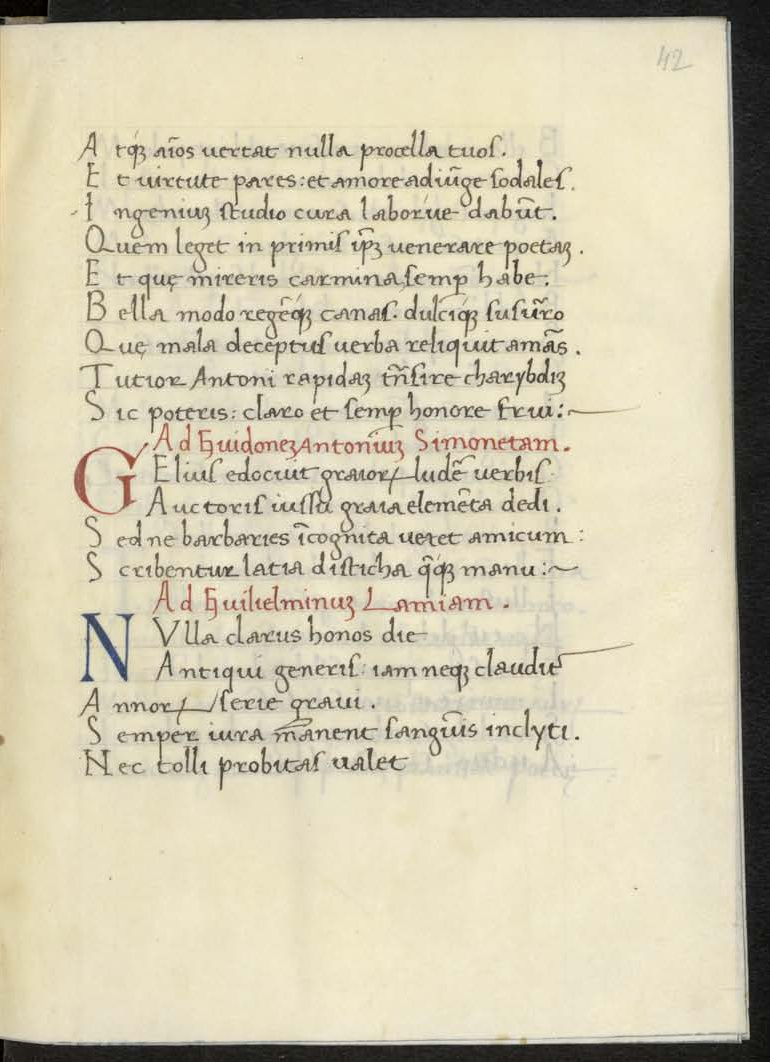 42
A tq₃ aīos vertat nulla procella tuoſ.
E t uirtute pares: et amore adiūge ſodaleſ.
I ngeniuȝ ſtudio cura laborue dabūt.
Quem leget in primiſ ip̄ȝ venerare poetaȝ.
E t quę mireris carmina, ſemp̲ habe:
B ella modo regēq₃ canaſ. dulciq₃ ſuſūro
Quę mala deceptuſ uerba reliquit amās.
Tutior Antoni rapidaȝ trāſire charybdiȝ
S ic poteris: claro et ſemp̲ honore frui:~
Ad Guidoneȝ Antoniūȝ Simonetam.
GEliuſ edociut graioꝝ ludē verbiſ
Auctoriſ iuſſu graia elemēta dedi.
S ed ne barbaries īcognita uetet amicum:
S cribentur latia diſticha q̄q₃ manu:~
Ad Guilielminuȝ Lamiam.
NVlla clarus honos die
Antiqui generiſ: iam neq₃ claudit
A nnoꝝ ſerie graui.
S emper iura manent ſanguīis inclyti.
Nec tolli probitaſ ualet